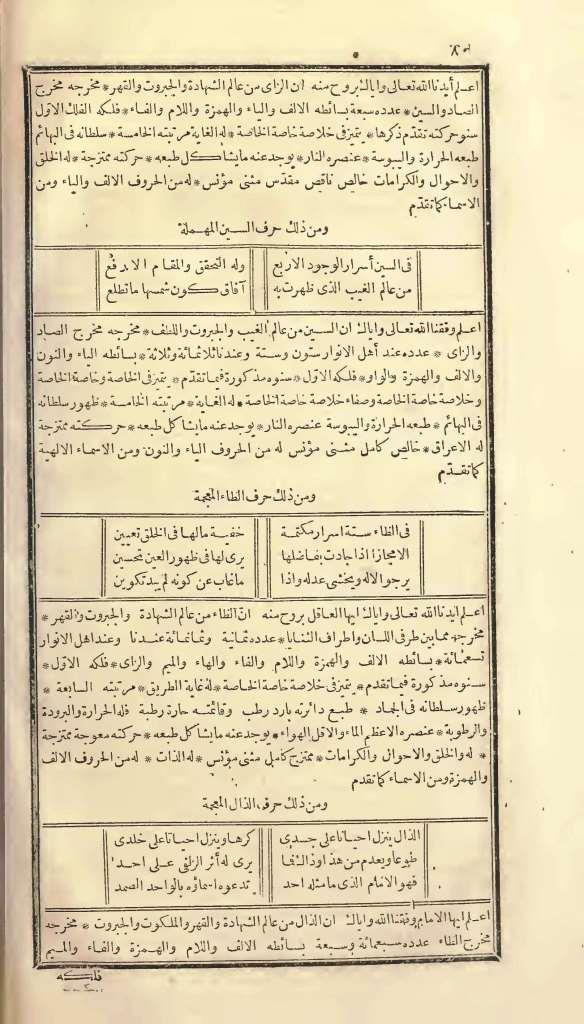 ٨٣
اعلم أيدنا الله تعالى واياك بروح منه ان الزاى من عالم الشهادة والجبروت والقهر * مخرجه مخرج
الصاد والسين * عدده سبعة بسائطه الالف والياء والهمزة واللام والفاء * فلكه الفلك الاول
سنو حركته تقدم ذكرها * يتميز فى خلاصة خاصة الخاصة * له الغاية مرتبته الخامسة * سلطانه فى البهائم
طبعه الحرارة واليبوسة * عنصره النار * يوجد عنه ما يشاكل طبعه * حركته ممتزجة * له الخلق
والاحوال والكرامات خالص ناقص مقدس مثنى مؤنس * له من الحروف الالف والياء ومن
الاسماء كما تقدم
ومن ذلك حرف السين المهملة
فى السين أسرار الوجود الاربع وله التحقق والمقام الارفع
من عالم الغيب الذى ظهرت به آفاق كون شمسها ما تطلع
اعلم وفقنا الله تعالى واياك ان السين من عالم الغيب والجبروت واللطف * مخرجه مخرج الصاد
والزاى * عدده عند أهل الانوار ستون وستة وعندنا ثلاثمائة وثلاثة * بسائطه الياء والنون
والالف والهمزة والواو * فلكه الاول * سنوه مذكورة فيما تقدم * يتميز فى الخاصة وخاصة الخاصة
وخلاصة خاصة الخاصة وصفاء خلاصة خاصة الخاصة * له الغاية * مرتبته الخامسة * ظهور سلطانه
فى البهائم * طبعه الحرارة واليبوسة عنصره النار * يوجد عنه ما يشاكل طبعه * حركته ممتزجة
له الاعراق * خالص كامل مثنى مؤنس له من الحروف الياء والنون ومن الاسماء الالهية
كما تقدم
ومن ذلك حرف الظاء المعجمة
فى الظاء ستة اسرار مكتمة خفية مالها فى الخلق تعيين
الا مجازا اذا جادت بفاضلها يرى لها فى ظهور العين تحسين
يرجو الاله ويخشى عدله واذا ما غاب عن كونه لم يبد تكوين
اعلم أيدنا الله تعالى واياك ايها العاقل بروح منه ان الظاء من عالم الشهادة والجبروت والقهر *
مخرجه مما بين طرفى اللسان واطراف الثنايا * عدده ثمانية وثمانمائة عندنا وعند اهل الانوار
تسعمائة * بسائطه الالف والهمزة واللام والفاء والهاء والميم والزاى * فلكه الاول *
سنوه مذكورة فيما تقدم * يتميز فى خلاصة خاصة الخاصة * له غاية الطريق * مرتبته السابعة *
ظهور سلطانه فى الجماد * طبع دائرته بارد رطب وقائمته حارة رطبة فله الحرارة والبرودة
والرطوبة * عنصره الاعظم الماء والاقل الهواء * يوجد عنه ما يشاكل طبعه * حركته معوجة ممتزجة
* له الخلق والاحوال والكرامات * ممتزج كامل مثنى مؤنس * له الذات * له من الحروف الالف
والهمزة ومن الاسماء كما تقدم
ومن ذلك حرف الذال المعجمة
الذال ينزل احيانا على جسدى كرها وينزل احيانا على خلدى
طوعا ويعدم من هذا وذاك فما يرى له أثر الزلفى على احد
فهو الامام الذى ما مثله احد تدعوه اسماؤه بالواحد الصمد
اعلم ايها الامام وفقنا الله واياك ان الذال من عالم الشهادة والقهر والملكوت والجبروت * مخرجه
مخرج الظاء عدده سبعمائة وسبعة بسائطه الالف واللام والهمزة والفاء والميم
فلكه